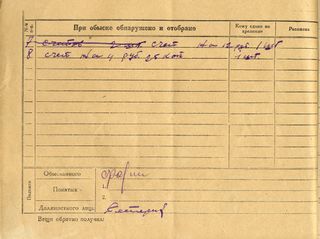 №№ п-п.
При обыске обнаружено и отобрано
Кому сдано на хранение
Расписка
7 счет На 12 руб 1 шт
8 счет На 4 руб 25 коп 1 шт.
Подписи
Обыскиваемого
Понятых - 1.
2.
Должностного лица
Вещи обратно получил: